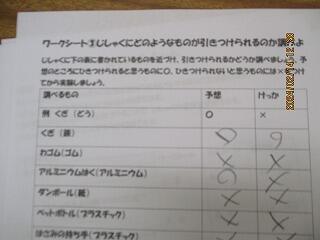 ワークシート③じしゃくにどのようなものが引きつけられるのか調べよ
じしゃくに下の表に書かれているものを近づけ、引きつけられるかどうか調べましょう。予
想のところにひきつけられると思うものに○、ひきつけられないと思うものには×をつけ
てから実験しましょう。
調べるもの 予想 けっか
例 くぎ(どう) ○ ×
くぎ(鉄) ○ ○
わゴム(ゴム) × ×
アルミニウムはく(アルミニウム) ○ ×
ダンボール(紙) × ×
ペットボトル(プラスチック) × ×
はさみの持ち手(プラスチック) ×